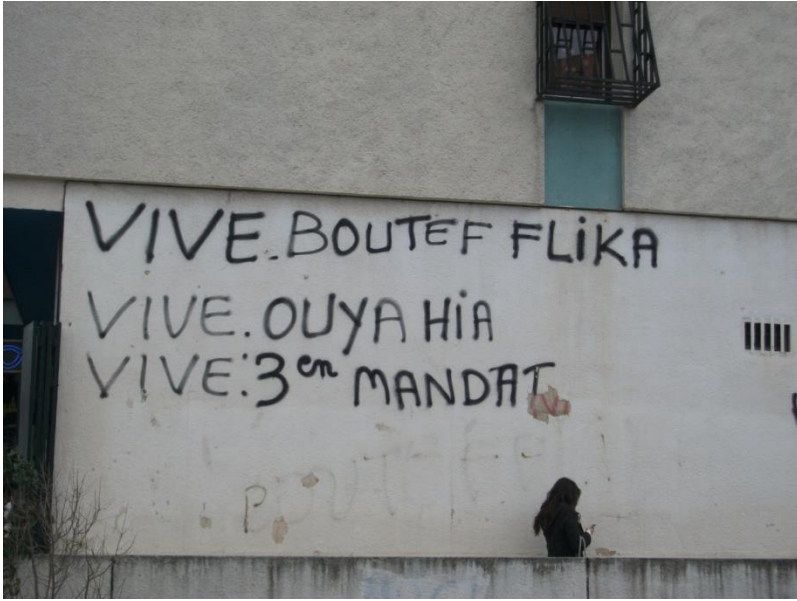 VIVE.BOUTEF FLiKA
VIVE.OUYAHiA
VIVE:3en MANDAT